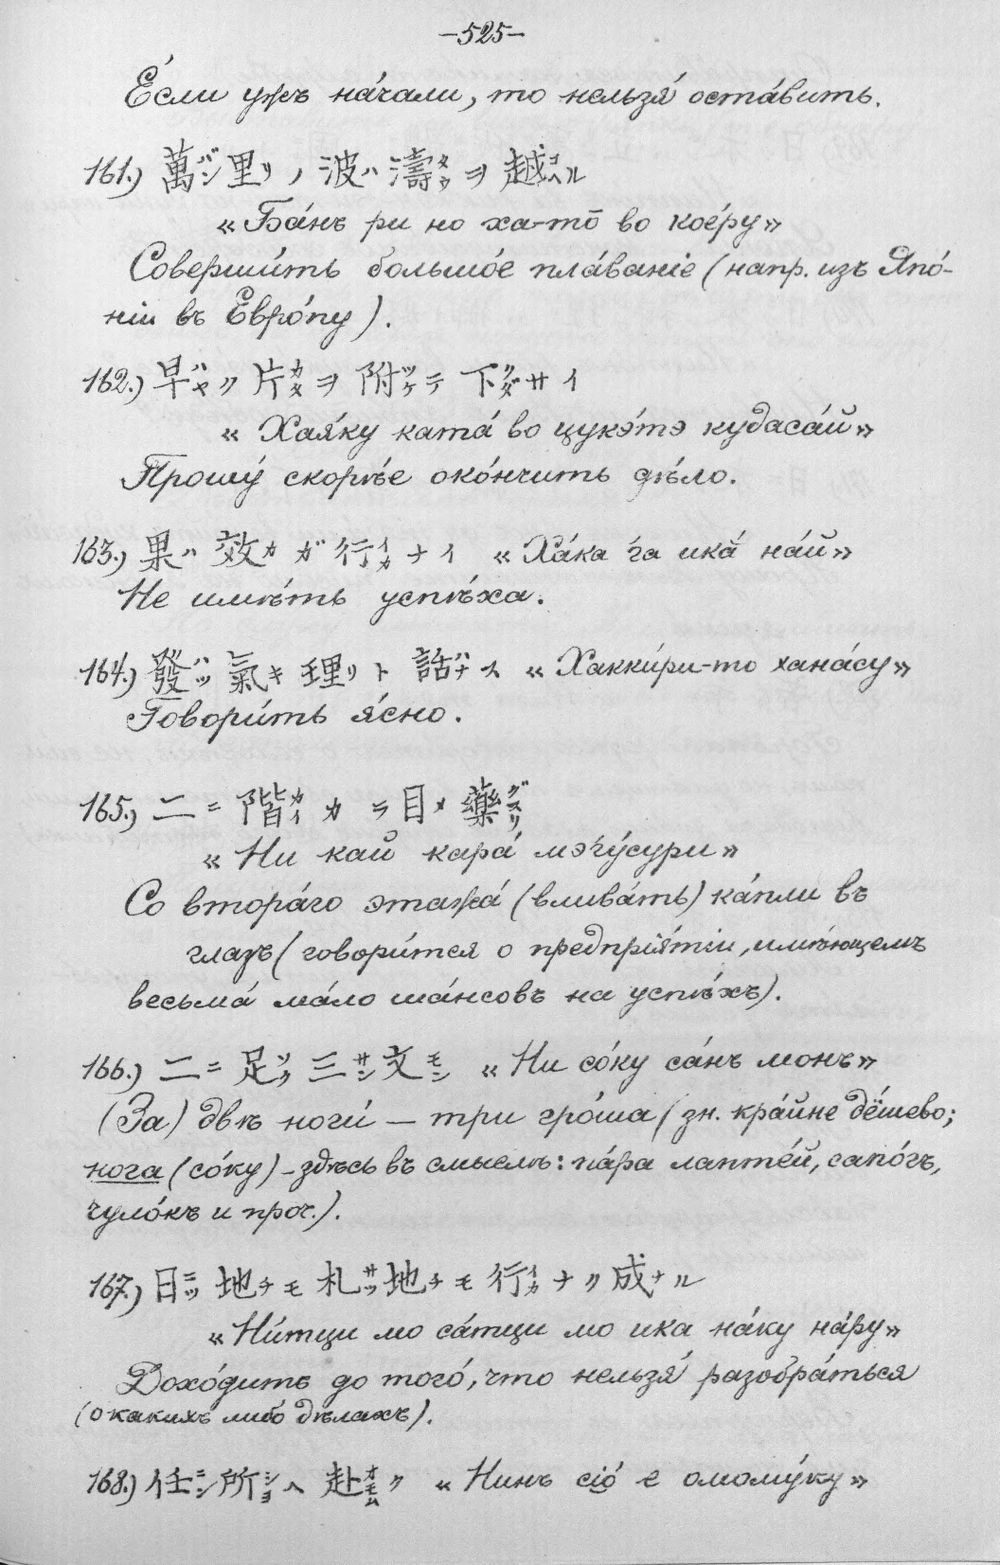 –525–
Е́сли ужъ нача́ли, то нельзя́ оста́вить.
161.) 萬バン里リノ波ハ濤タウヲ越コヘル
«Ба́нъ ри но ха-то̄ во кое́ру»
Соверши́ть большо́е пла́ваніе (напр. изъ Япо́-
ніи въ Евро́пу).
162.) 早ハヤク片カタヲ附ツケテ下クダサイ
«Хая́ку ката́ во цукэ́тэ кудаса́й»
Прошу́ скорѣ́е око́нчить дѣ́ло.
163.) 果ハ效カガ行イカナイ «Ха́ка га икӑ на́й»
Не имѣ́ть успѣ́ха.
164.) 發ハツ氣キ理リト話ハナス «Хакки́ри-то хана́су»
Говори́ть я́сно.
165.) 二ニ階カイカラ目メ藥グスリ
«Ни кай кара́ мэгу́сури»
Со втора́го этажа́ (влива́ть) ка́пли въ
глазъ (говори́тся о предпрія́тіи, имѣ́ющемъ
весьма́ ма́ло ша́нсовъ на успѣ́хъ).
166.) 二ニ足ソク三サン文モン «Ни со́ку са́нъ монъ»
(За) двѣ ноги́ — три гро́ша (зн. кра́йне дёшево;
нога (со́ку) – здѣсь въ смыслѣ: па́ра лапте́й, сапо́гъ,
чуло́къ и проч.).
167.) 日ニツ地チモ札サツ地チモ行イカナク成ナル
«Ни́тци мо са́тци мо ика на́ку на́ру»
Дохо́дитъ до того́, что нельзя́ разобра́ться
(о какихъ либо дѣлахъ).
168.) 任ニン所シヨヘ赴オモムク «Нинъ сіо́ е омому́ку»